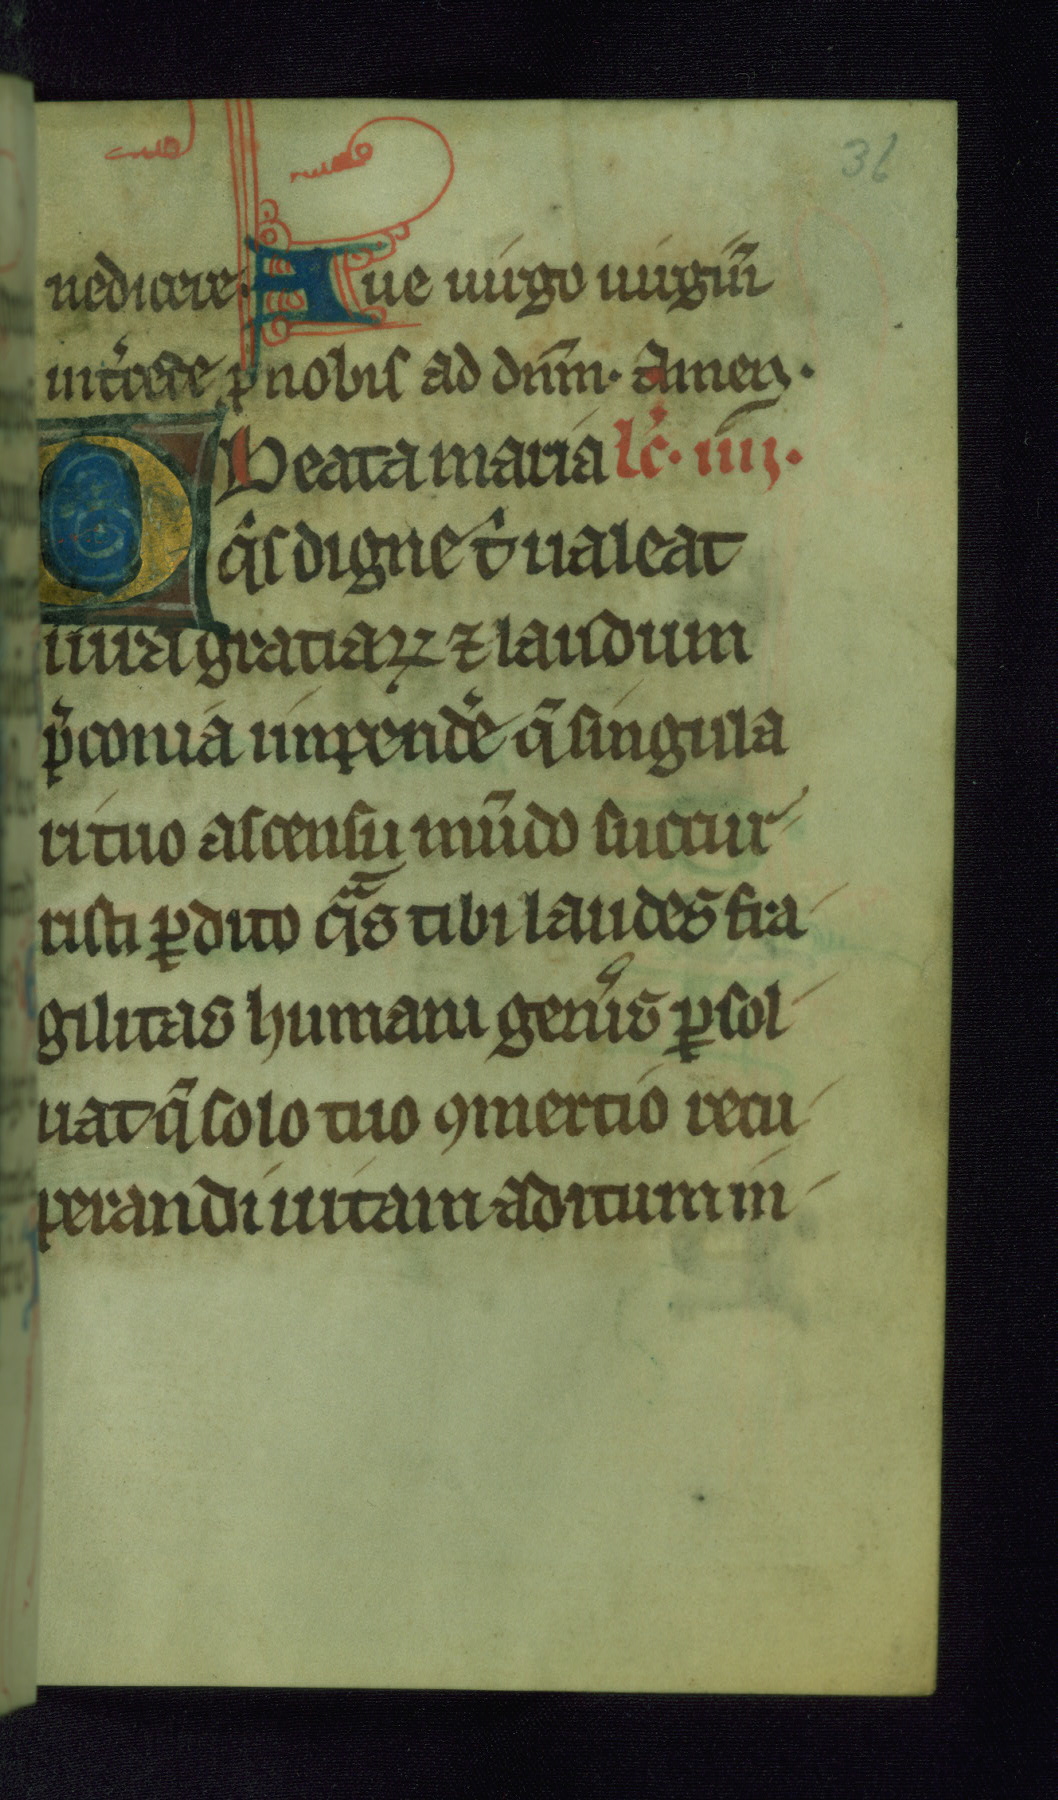 36
nedicere. Aue uirgo uirgiū
int͛cede ꝓ nobis ad dn̄m. amen.
O Beata maria lc̄. iiij.
q̊s digne t̊ ualeat
iura gratiaꝝ ⁊ laudum
p̄conia impend͛e q̄ singula
ri tuo ascensu mūdo succur
risti ꝑdito qͣs tibi laudes fra
gilitas humani gen͛is ꝑsol
uat q̄ solo tuo ꝯmercio recu
perandi uitam aditum in